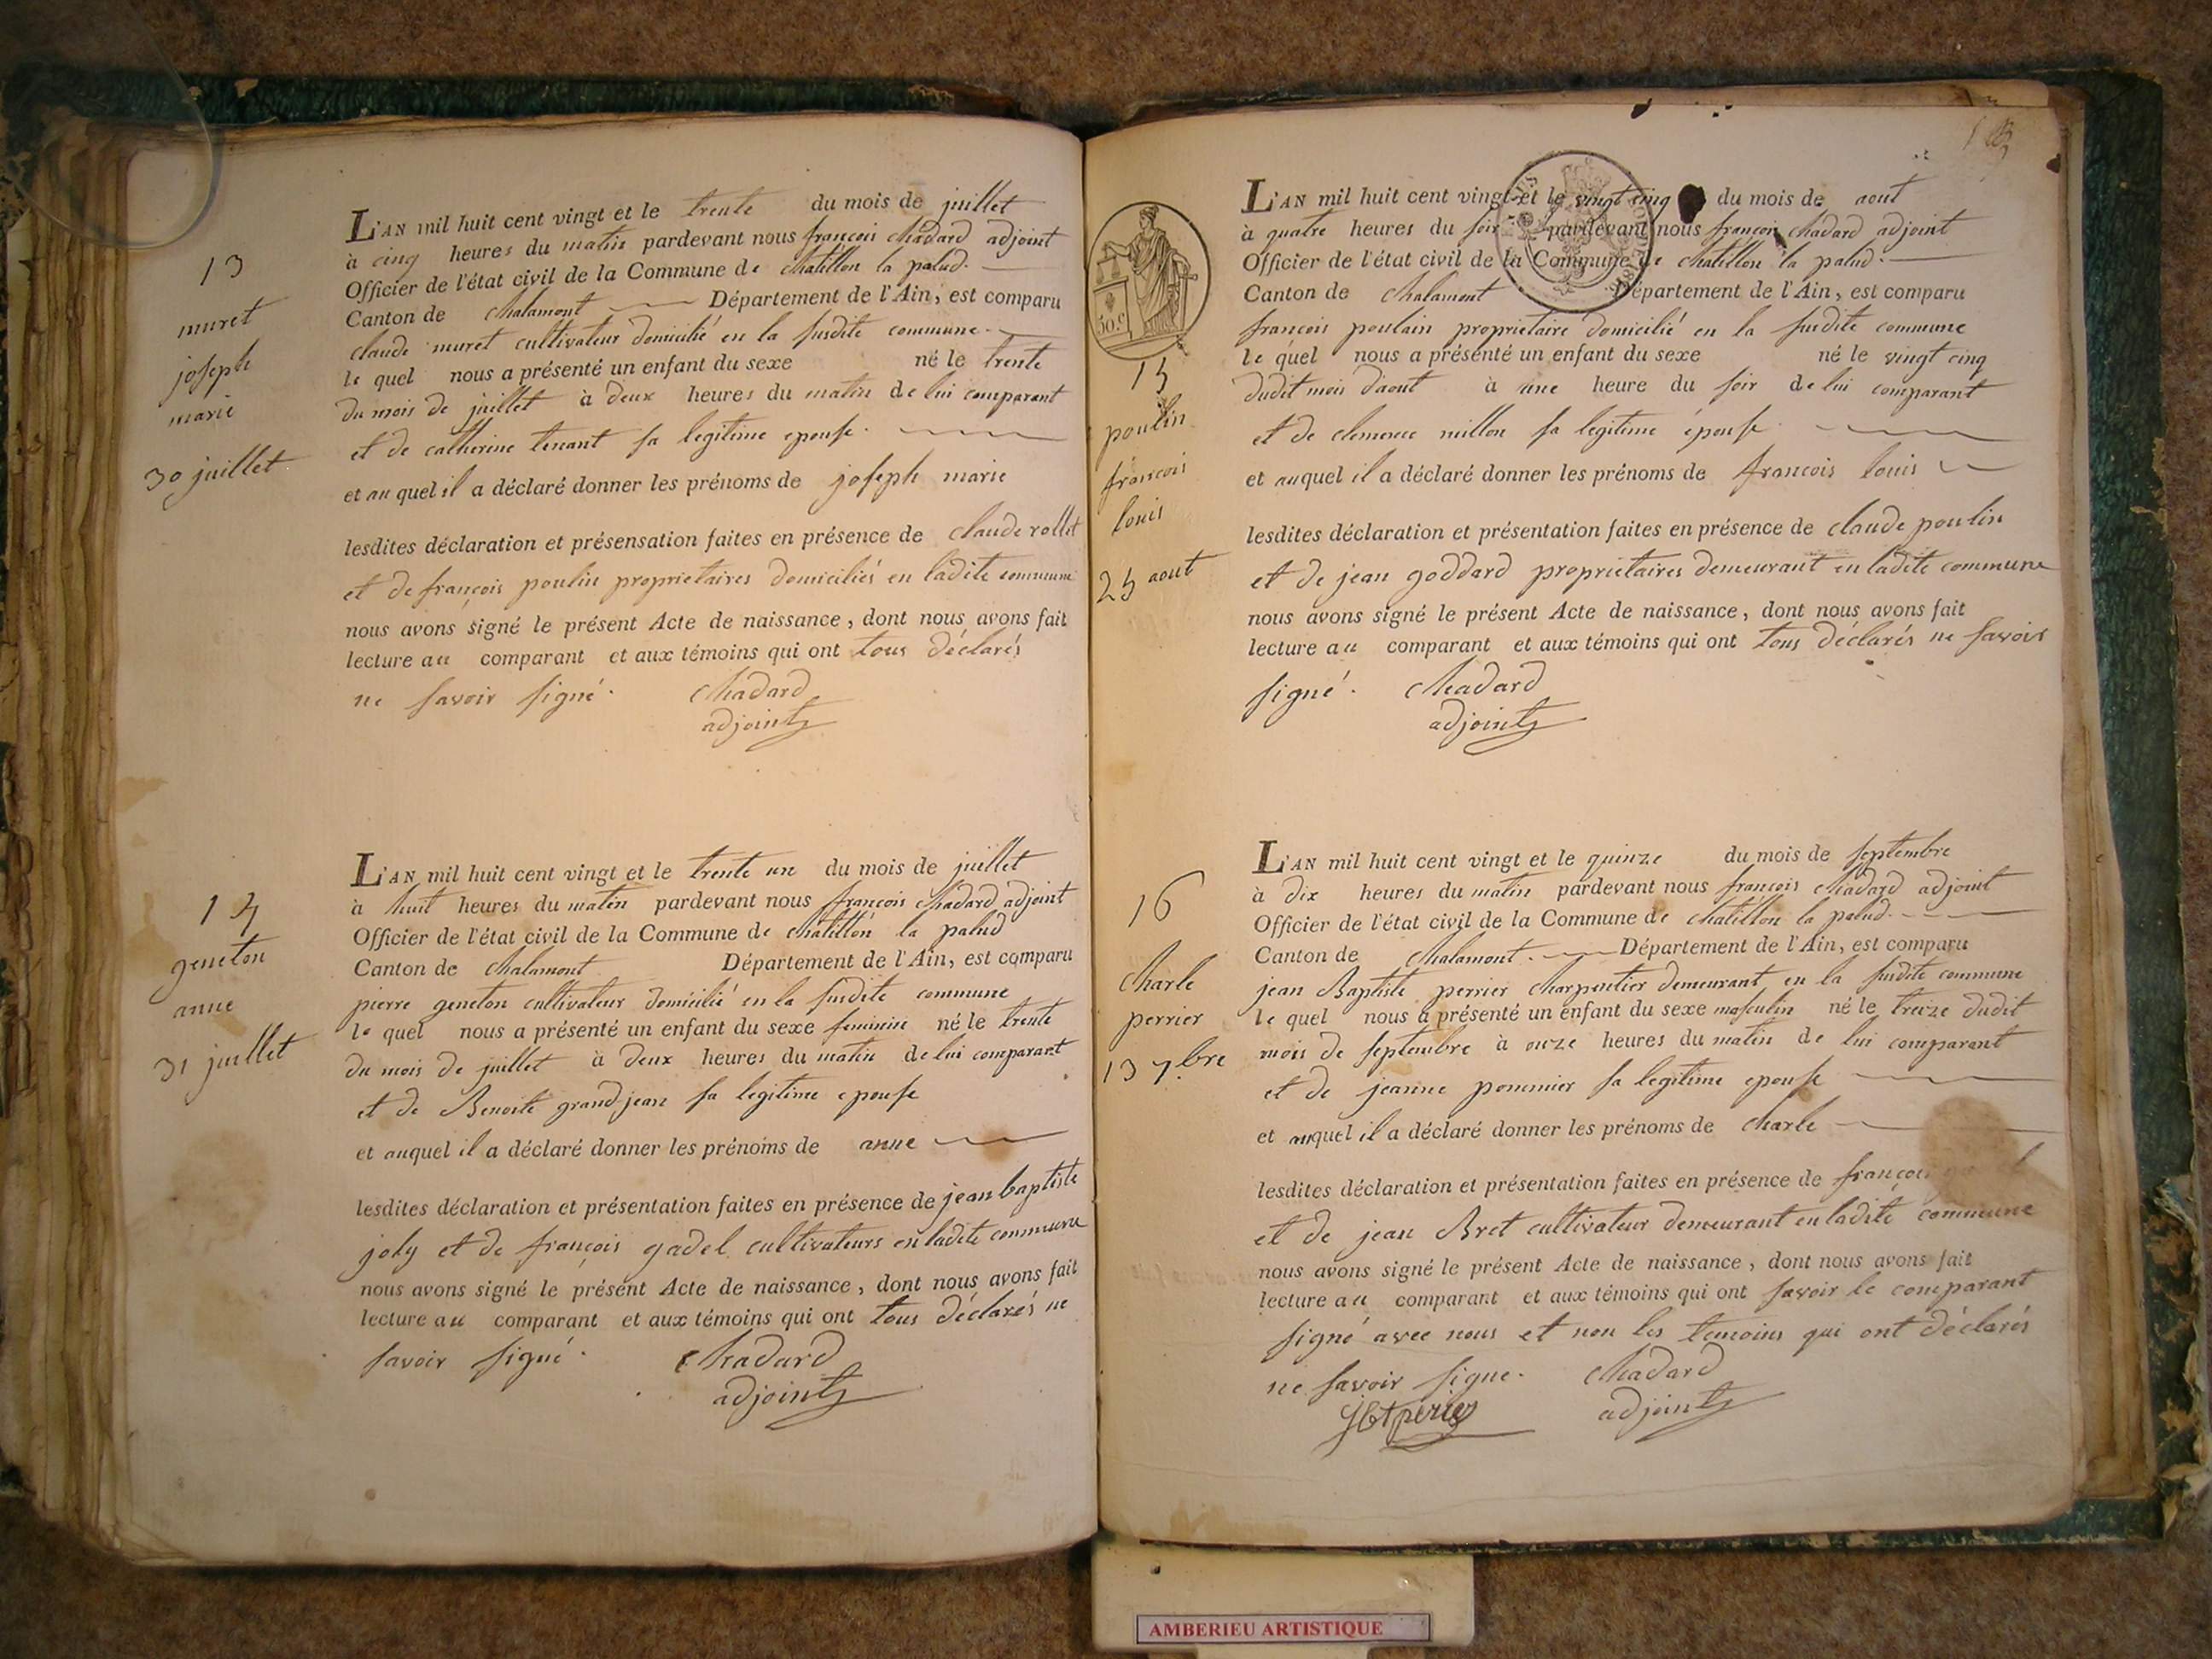 13
muret
joseph
marie
30 juillet
L'AN mil huit cent vingt et le trente du mois de juillet
à cinq heures du matin pardevant nous françois chadard adjoint
Officier de l'état civil de la Commune de chatillon la palud.
Canton de chalamont Département de l'Ain, est comparu
claude muret cultivateur domicilié en la susdite commune
le quel nous a présenté un enfant du sexe né le trente
du mois de juillet à deux heures du matin de lui comparant
et de catherine tenant sa legitime epouse.
et au quel il a déclaré donner les prénoms de joseph marie
lesdites déclaration et présensation faites en présence de claude rollet
et de françois poulin proprietaires domiciliés en ladite commune
nous avons signé le présent Acte de naissance, dont nous avons fait
lecture au comparant et aux témoins qui ont tous déclarés
ne savoir signé. chadard
adjoint
14
geneton
anne
31 juillet
L'AN mil huit cent vingt et le trente un du mois de juillet
à huit heures du matin pardevant nous françois chadard adjoint
Officier de l'état civil de la Commune de chatillon la palud
Canton de chalamont Département de l'Ain, est comparu
pierre geneton cultivateur domicilié en la susdite commune
le quel nous a présenté un enfant du sexe feminin né le trente
du mois de juillet à deux heures du matin de lui comparant
et de Benoite grand-jean sa legitime epouse
et auquel il a déclaré donner les prénoms de anne
lesdites déclaration et présentation faites en présence de jean baptiste
joly et de françois gadel cultivateurs en ladite commune
nous avons signé le présent Acte de naissance, dont nous avons fait
lecture au comparant et aux témoins qui ont tous déclarés ne
savoir signé. chadard
adjoint
50.c
15
poulin
françois
louis
25 aout
L'AN mil huit cent vingt et le vingt cinq du mois de aout
à quatre heures du soir pardevant nous françois chadard adjoint
Officier de l'état civil de la Commune de chatillon la palud.
Canton de chalamont Département de l'Ain, est comparu
françois poulain proprietaire domicilié en la susdite commune
le quel nous a présenté un enfant du sexe né le vingt cinq
dudit mois d'aout à une heure du soir de lui comparant
et de clemence millon sa legitime épouse.
et auquel il a déclaré donner les prénoms de françois louis
lesdites déclaration et présentation faites en présence de claude poulin
et de jean goddard proprietaires demeurant en ladite commune
nous avons signé le présent Acte de naissance, dont nous avons fait
lecture au comparant et aux témoins qui ont tous déclarés ne savoir
signé. chadard
adjoint
16
charle
perrier
13 7.bre
L'AN mil huit cent vingt et le quinze du mois de septembre
à dix heures du matin pardevant nous françois chadard adjoint
Officier de l'état civil de la Commune de chatillon la palud.
Canton de chalamont. Département de l'Ain, est comparu
jean Baptiste perrier charpentier demeurant en la susdite commune
le quel nous a présenté un enfant du sexe masculin né le treize dudit
mois de septembre à onze heures du matin de lui comparant
et de jeanne pommier sa legitime epouse
et auquel il a déclaré donner les prénoms de charle
lesdites déclaration et présentation faites en présence de françois
et de jean Bret cultivateur demeurant en ladite commune
nous avons signé le présent Acte de naissance, dont nous avons fait
lecture au comparant et aux témoins qui ont savoir le comparant
signé avec nous et non les temoins qui ont déclarés
ne savoir signe. chadard
JBt perier adjoint
AMBERIEU ARTISTIQUE